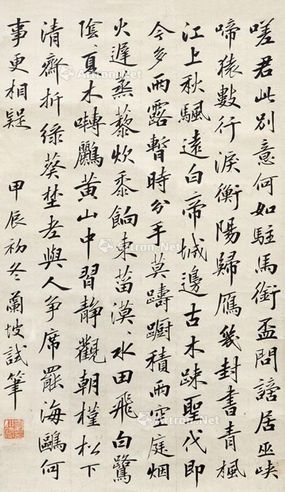 嗟君此別意何如駐馬銜盃問謫居巫峽
啼猿數行淚衡陽歸鴈幾封書青楓
江上秋颿遠白帝城邊古木疎聖代即
今多雨露暫時分手莫躊躕積雨空庭烟
火遲蒸藜炊黍餉東菑漠〻水田飛白鷺
陰〻夏木囀鸝黃山中習靜觀朝槿松下
清齋折綠葵埜老與人爭席罷海鷗何
事更相疑 甲辰初冬 蘭坡試筆